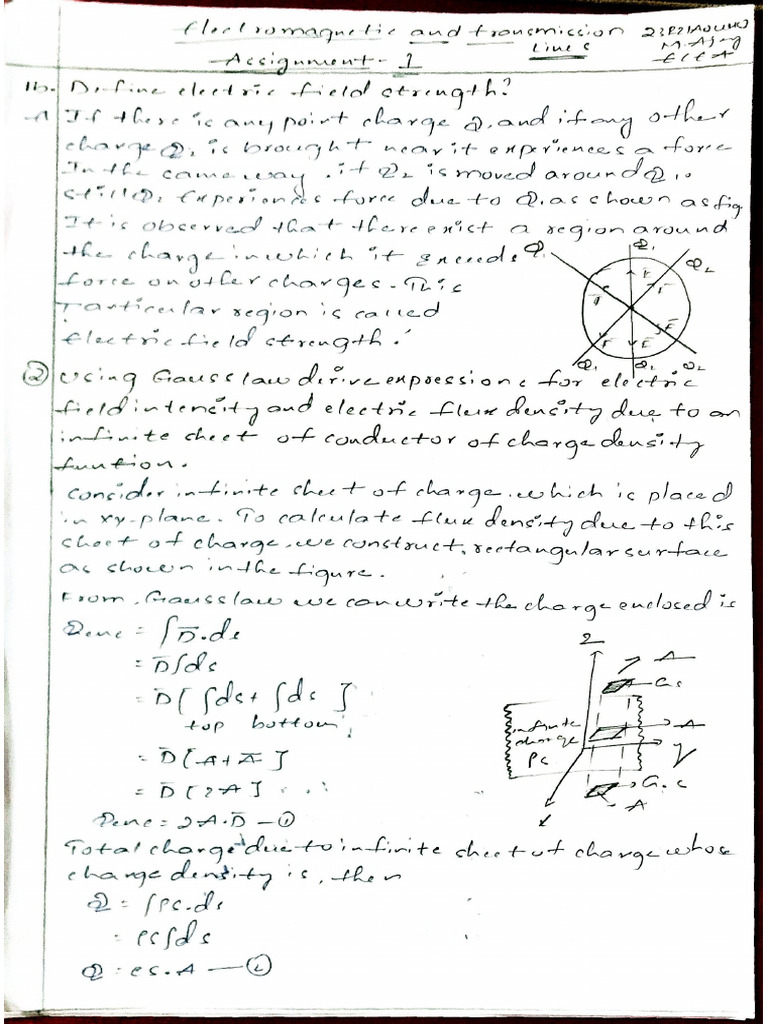 Electromagnetic and transmission
Lines
Assignment - 1
M. Ajay
ECE A
1b. Define electric field strength?
A If there is any point charge Q1 and if any other
charge Q2 is brought near it experiences a force
In the same way, if Q2 is moved around Q1.
still Q2 experiences force due to Q1 as shown as fig
It is observed that there exist a region around
the charge in which it exceeds
force on other charges. This
Particular region is called
Electric field strength.
Q1
Q2
E
② Using Gauss law derive expressions for electric
field intensity and electric flux density due to an
infinite sheet of conductor of charge density
funtion.
Consider infinite sheet of charge. which is placed
in xy-plane. To calculate flux density due to this
sheet of charge, we construct, rectangular surface
as shown in the figure.
From, Gauss law we can write the charge enclosed is
Qenc = ∫D̄.ds
= D̄∫ds
= D̄[∫ds + ∫ds]
top bottom
= D̄[A+A]
= D̄[2A]
Qenc = 2A.D̄ - ①
Z
A
G.S
infinite
charge
ρs
A
y
G.S
A
x
Total charge due to infinite sheet of charge whose
charge density is, then
Q = ∫ρs.ds
= ρs∫ds
Q = ρs.A — ②